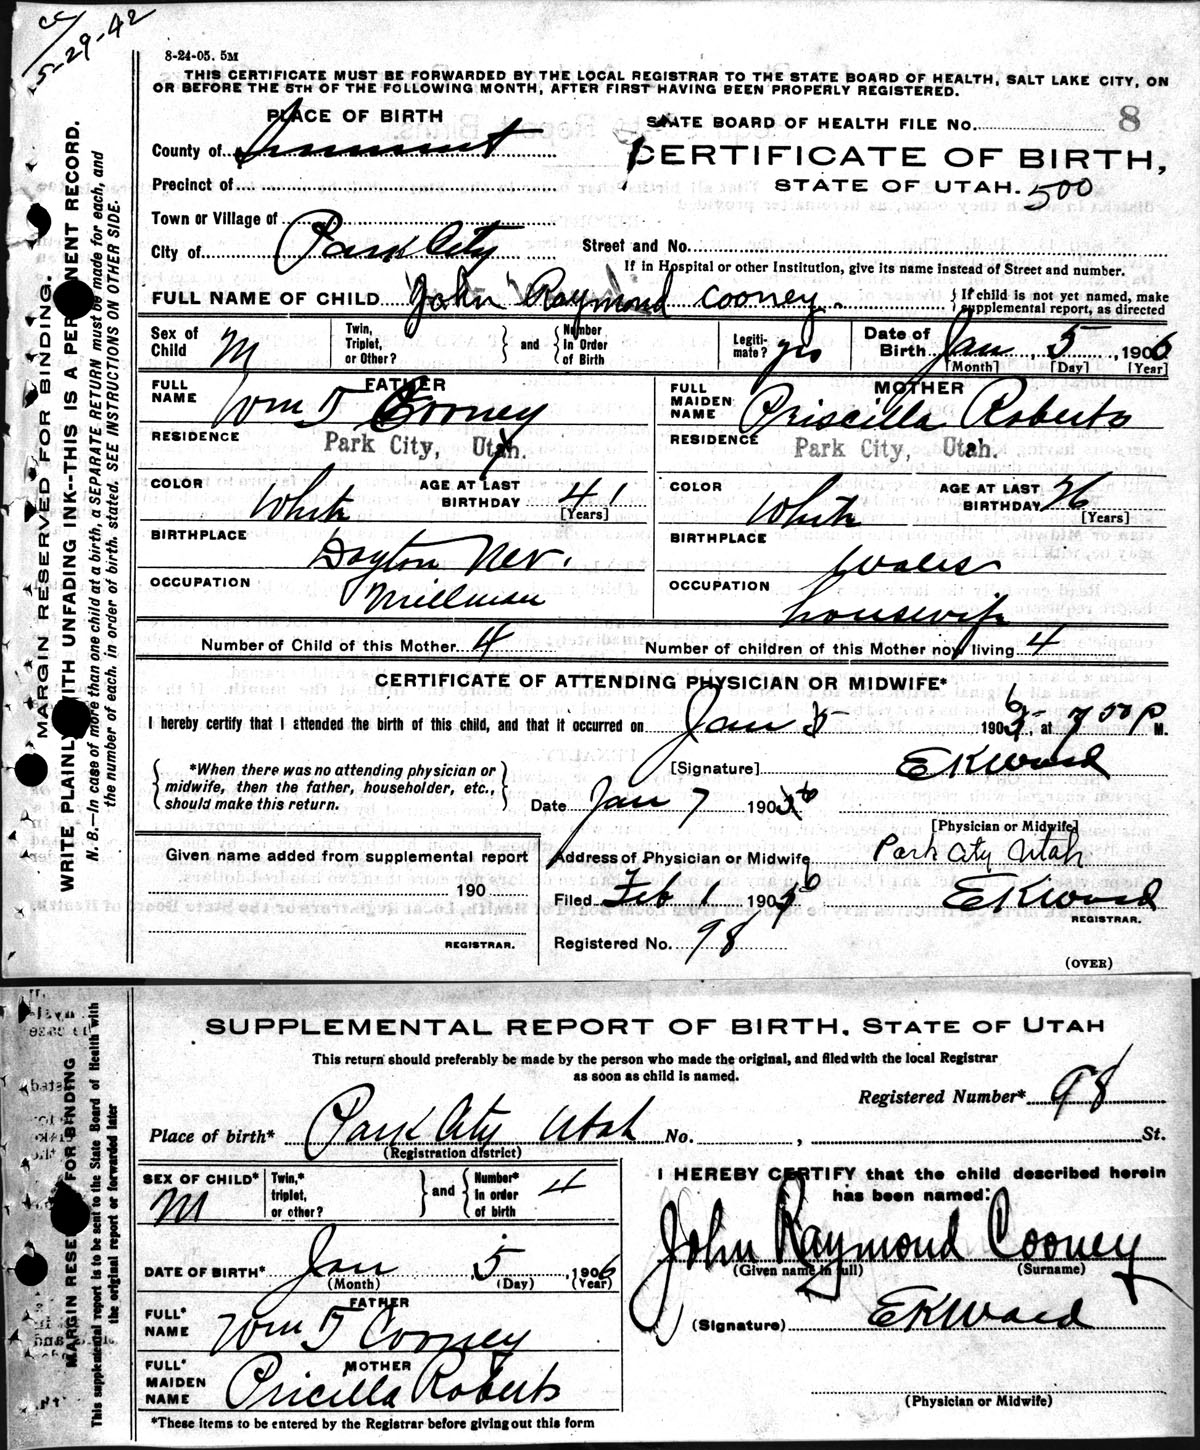 cc
5-29-42
8-24-05. 5M
THIS CERTIFICATE MUST BE FORWARDED BY THE LOCAL REGISTRAR TO THE STATE BOARD OF HEALTH, SALT LAKE CITY, ON
OR BEFORE THE 5TH OF THE FOLLOWING MONTH, AFTER FIRST HAVING BEEN PROPERLY REGISTERED.
PLACE OF BIRTH
STATE BOARD OF HEALTH FILE No. 8
County of Summit
CERTIFICATE OF BIRTH,
Precinct of
STATE OF UTAH. 500
Town or Village of
City of Park City
Street and No.
If in Hospital or other Institution, give its name instead of Street and number.
FULL NAME OF CHILD John Raymond Cooney. { If child is not yet named, make
supplemental report, as directed
Sex of Child M
Twin, Triplet, or Other? } and { Number in Order of Birth
Legiti-mate? yes
Date of Birth Jan 5, 1906
[Month] [Day] [Year]
FATHER
FULL NAME Wm T Cooney
MOTHER
FULL MAIDEN NAME Priscilla Roberts
RESIDENCE Park City, Utah.
RESIDENCE Park City, Utah.
COLOR White AGE AT LAST BIRTHDAY 41 [Years]
COLOR White AGE AT LAST BIRTHDAY 36 [Years]
BIRTHPLACE Dayton Nev.
BIRTHPLACE Wales
OCCUPATION Millman
OCCUPATION housewife
Number of Child of this Mother 4
Number of children of this Mother now living 4
CERTIFICATE OF ATTENDING PHYSICIAN OR MIDWIFE*
I hereby certify that I attended the birth of this child, and that it occurred on Jan 5 1906, at 7 50 P M.
{ *When there was no attending physician or
midwife, then the father, householder, etc.,
should make this return. }
[Signature] EKWard
Date Jan 7 1906
[Physician or Midwife]
Given name added from supplemental report
190
REGISTRAR.
Address of Physician or Midwife Park City Utah
Filed Feb 1 1906 EKWard
REGISTRAR.
Registered No. 98
(OVER)
MARGIN RESERVED FOR BINDING.
WRITE PLAINLY WITH UNFADING INK--THIS IS A PERMANENT RECORD.
N. B.--In case of more than one child at a birth, a SEPARATE RETURN must be made for each, and
the number of each, in order of birth, stated. SEE INSTRUCTIONS ON OTHER SIDE.
SUPPLEMENTAL REPORT OF BIRTH, STATE OF UTAH
This return should preferably be made by the person who made the original, and filed with the local Registrar
as soon as child is named.
Registered Number* 98
Place of birth* Park City Utah No. , St.
(Registration district)
SEX OF CHILD* M
Twin,* triplet, or other? } and { Number* in order of birth 4
DATE OF BIRTH* Jan 5, 1906
(Month) (Day) (Year)
FATHER
FULL* NAME Wm T Cooney
MOTHER
FULL* MAIDEN NAME Pricilla Roberts
*These items to be entered by the Registrar before giving out this form
I HEREBY CERTIFY that the child described herein
has been named:
John Raymond Cooney
(Given name in full) (Surname)
(Signature) EKWard
(Physician or Midwife)
MARGIN RESERVED FOR BINDING
This supplemental report is to be sent to the State Board of Health with
the original report or forwarded later